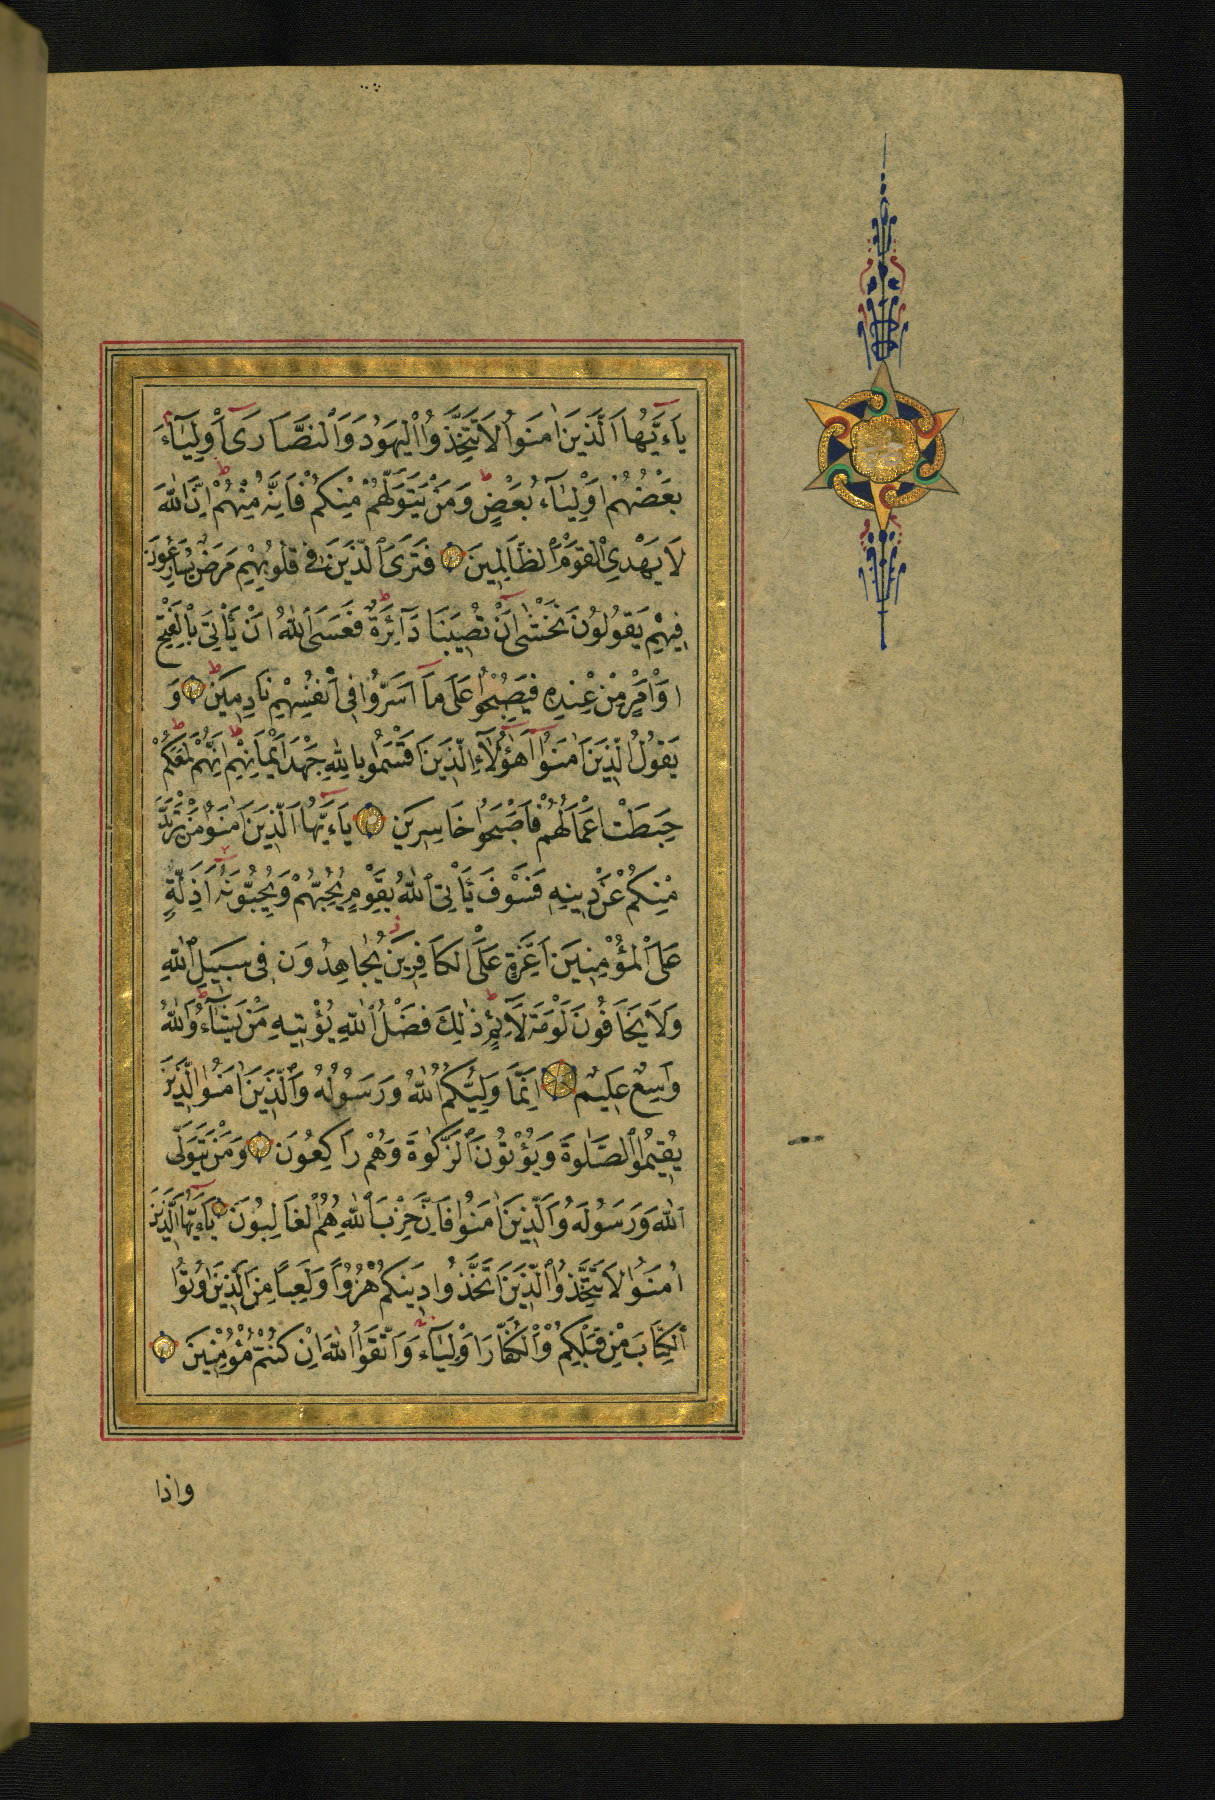 يَاءَيُّهَا الَّذِينَ اٰمَنُوا لَا تَتَّخِذُوا الْيَهُودَ وَالنَّصَارَى اَوْلِيَاءَ
بَعْضُهُمْ اَوْلِيَاءُ بَعْضٍ وَمَنْ يَتَوَلَّهُمْ مِنْكُمْ فَاِنَّهُ مِنْهُمْ اِنَّ اللهَ
لَا يَهْدِى الْقَوْمَ الظَّالِمِينَ فَتَرَى الَّذِينَ فِى قُلُوبِهِمْ مَرَضٌ يُسَارِعُونَ
فِيهِمْ يَقُولُونَ نَخْشٰى اَنْ تُصِيبَنَا دَائِرَةٌ فَعَسَى اللهُ اَنْ يَأْتِىَ بِالْفَتْحِ
اَوْ اَمْرٍ مِنْ عِنْدِهِ فَيُصْبِحُوا عَلَى مَا اَسَرُّوا فِى اَنْفُسِهِمْ نَادِمِينَ وَ
يَقُولُ الَّذِينَ اٰمَنُوا اَهٰؤُلَاءِ الَّذِينَ اَقْسَمُوا بِاللهِ جَهْدَ اَيْمَانِهِمْ اِنَّهُمْ لَمَعَكُمْ
حَبِطَتْ اَعْمَالُهُمْ فَاَصْبَحُوا خَاسِرِينَ يَاءَيُّهَا الَّذِينَ اٰمَنُوا مَنْ يَرْتَدَّ
مِنْكُمْ عَنْ دِينِهِ فَسَوْفَ يَأْتِى اللهُ بِقَوْمٍ يُحِبُّهُمْ وَيُحِبُّونَهُ اَذِلَّةٍ
عَلَى الْمُؤْمِنِينَ اَعِزَّةٍ عَلَى الْكَافِرِينَ يُجَاهِدُونَ فِى سَبِيلِ اللهِ
وَلَا يَخَافُونَ لَوْمَةَ لَائِمٍ ذٰلِكَ فَضْلُ اللهِ يُؤْتِيهِ مَنْ يَشَاءُ وَاللهُ
وَاسِعٌ عَلِيمٌ اِنَّمَا وَلِيُّكُمُ اللهُ وَرَسُولُهُ وَالَّذِينَ اٰمَنُوا الَّذِينَ
يُقِيمُوا الصَّلٰوةَ وَيُؤْتُونَ الزَّكٰوةَ وَهُمْ رَاكِعُونَ وَمَنْ يَتَوَلَّى
اللهَ وَرَسُولَهُ وَالَّذِينَ اٰمَنُوا فَاِنَّ حِزْبَ اللهِ هُمُ الْغَالِبُونَ يَاءَيُّهَا الَّذِينَ
اٰمَنُوا لَا تَتَّخِذُوا الَّذِينَ اتَّخَذُوا دِينَكُمْ هُزُوًا وَلَعِبًا مِنَ الَّذِينَ اُوتُوا
الْكِتَابَ مِنْ قَبْلِكُمْ وَالْكُفَّارَ اَوْلِيَاءَ وَاتَّقُوا اللهَ اِنْ كُنْتُمْ مُؤْمِنِينَ
واذا